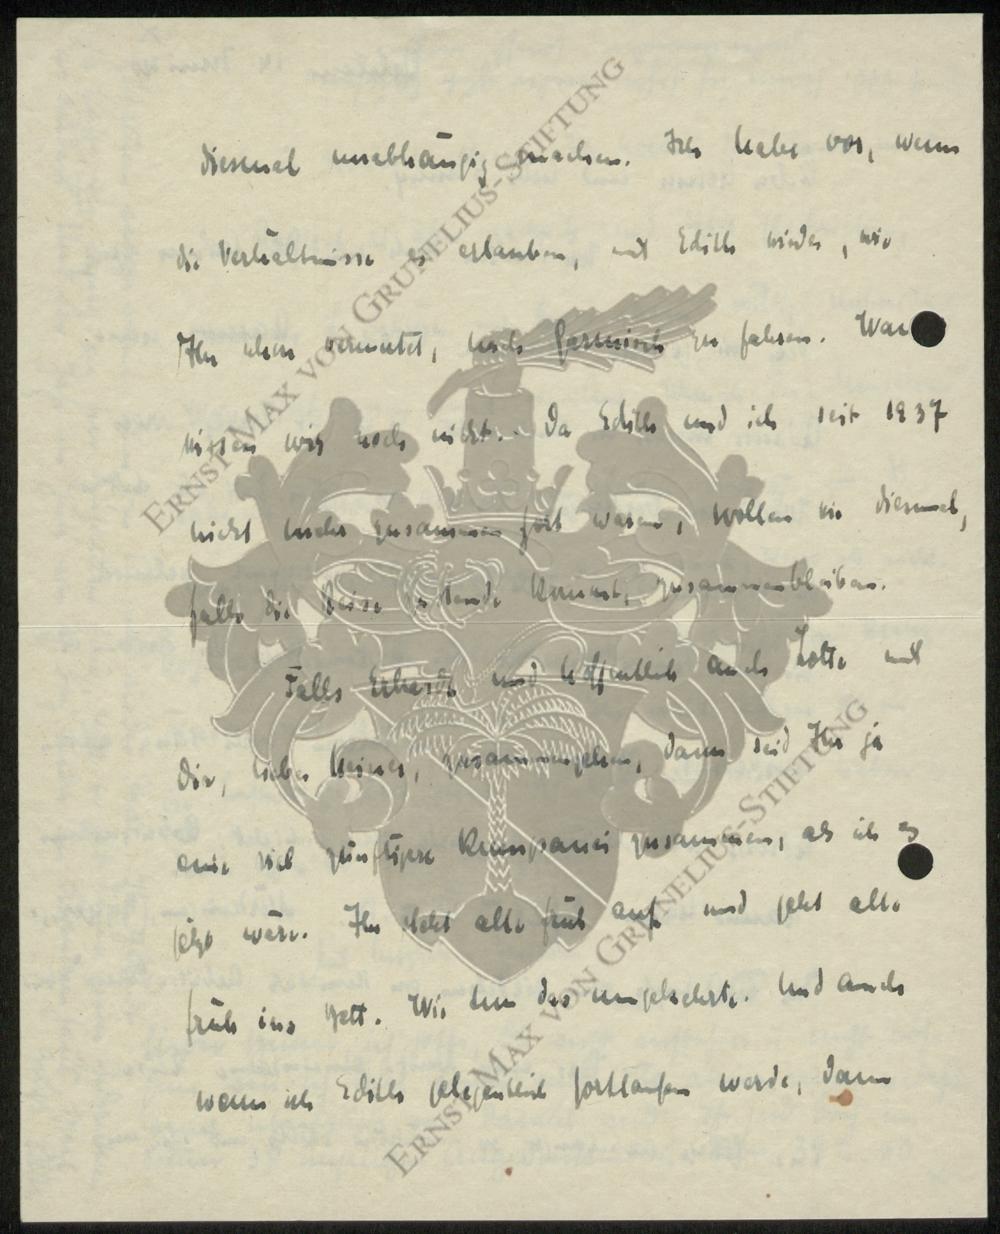 diesmal unabhängig machen. Ich habe vor, wenn
die Verhältnisse es erlauben, mit Edith wieder, wie
Ihr schon vermutet, nach Garmisch zu fahren. Wann
wissen wir noch nicht. Da Edith und ich seit 1937
nicht mehr zusammen fort waren, wollen wir diesmal,
falls die Reise zustande kommt, zusammenbleiben.
Falls Erhardt und hoffentlich auch Lotte mit
Dir, lieber Heiner, zusammengehen, dann seid Ihr ja
eine viel zünftigere Kumpanei zusammen, als ich es
jetzt wäre. Ihr steht alle früh auf und geht alle
früh ins Bett. Wir tun das umgekehrte. Und auch
wenn ich Edith gelegentlich fortlaufen werde, dann
ERNST MAX VON GRUNELIUS-STIFTUNG
ERNST MAX VON GRUNELIUS-STIFTUNG